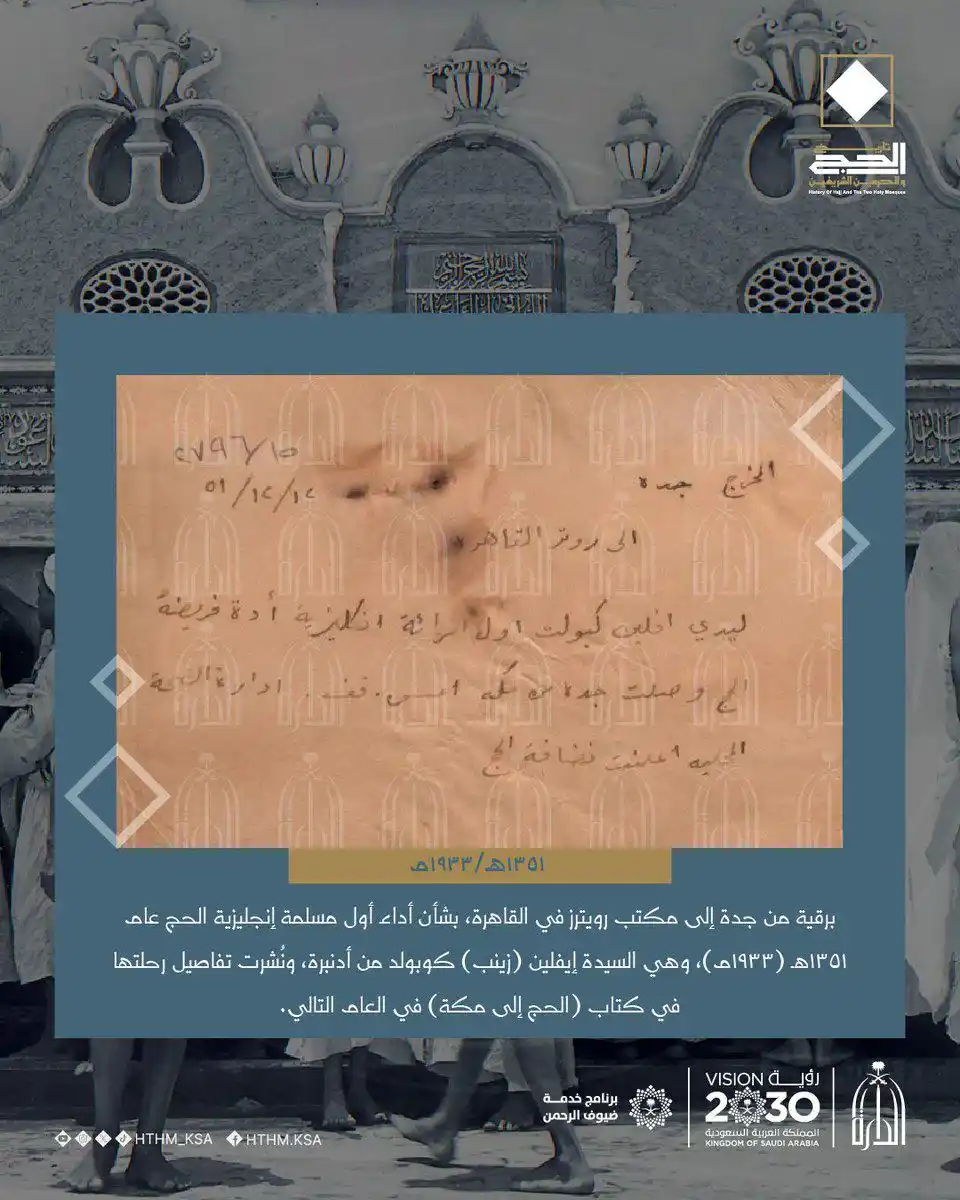 تاريخ
الحج
والحرمين الشريفين
History Of Hajj And The Two Holy Mosques
بسم الله الرحمن الرحيم
٢٧٩٦/١٥
المخرج جدة
٥١/١٢/١٢
الى روتر القاهرة
ليدي افلين كبولت اول امرائة انكليزية أدة فريضة
الحج وصلت جدة من مكه امس. قف. ادارة الصحة
المحليه اعلنت نضافة الحج
١٣٥١هـ/١٩٣٣مـ
برقية من جدة إلى مكتب رويترز في القاهرة، بشأن أداء أول مسلمة إنجليزية الحج عام
١٣٥١هـ (١٩٣٣مـ)، وهي السيدة إيفلين (زينب) كوبولد من أدنبرة، ونُشرت تفاصيل رحلتها
في كتاب (الحج إلى مكة) في العام التالي.
HTHM_KSA HTHM.KSA
برنامج خدمة
ضيوف الرحمن
VISION رؤيــة
2030
المملكة العربية السعودية
KINGDOM OF SAUDI ARABIA
الدارة